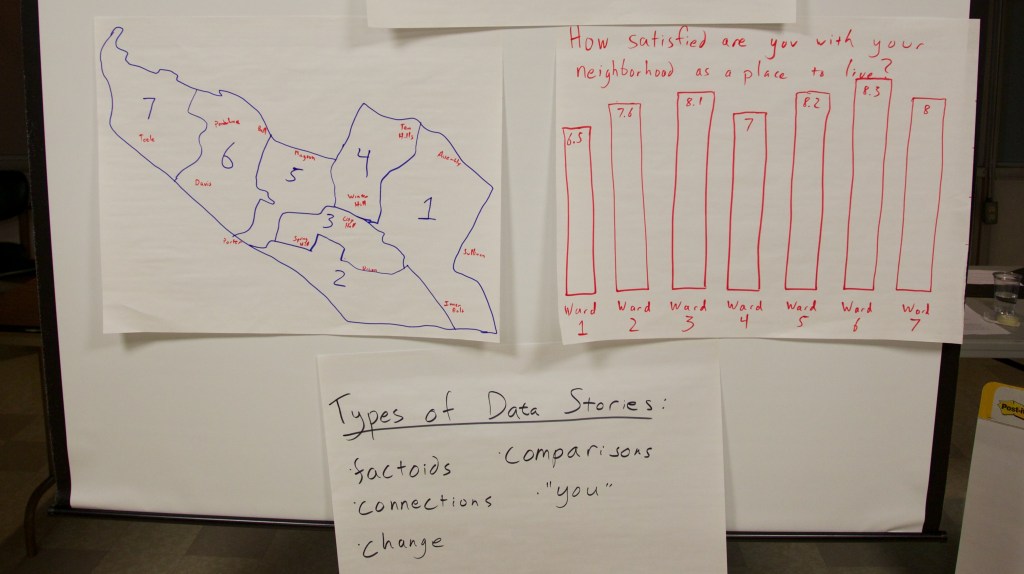 7
Teele
Powderhouse
Ball
6
Davis
Porter
Magoun
5
4
Ten
Hills
Winter
Hill
Assembly
1
Sullivan
3
City
Hall
Spring
Hill
Union
2
Inman
How satisfied are you with your
neighborhood as a place to live?
6.5
7.6
8.1
7
8.2
8.3
8
Ward Ward Ward Ward Ward Ward Ward
1 2 3 4 5 6 7
Types of Data Stories:
·factoids
·connections
·change
·comparisons
·"you"
Post-it